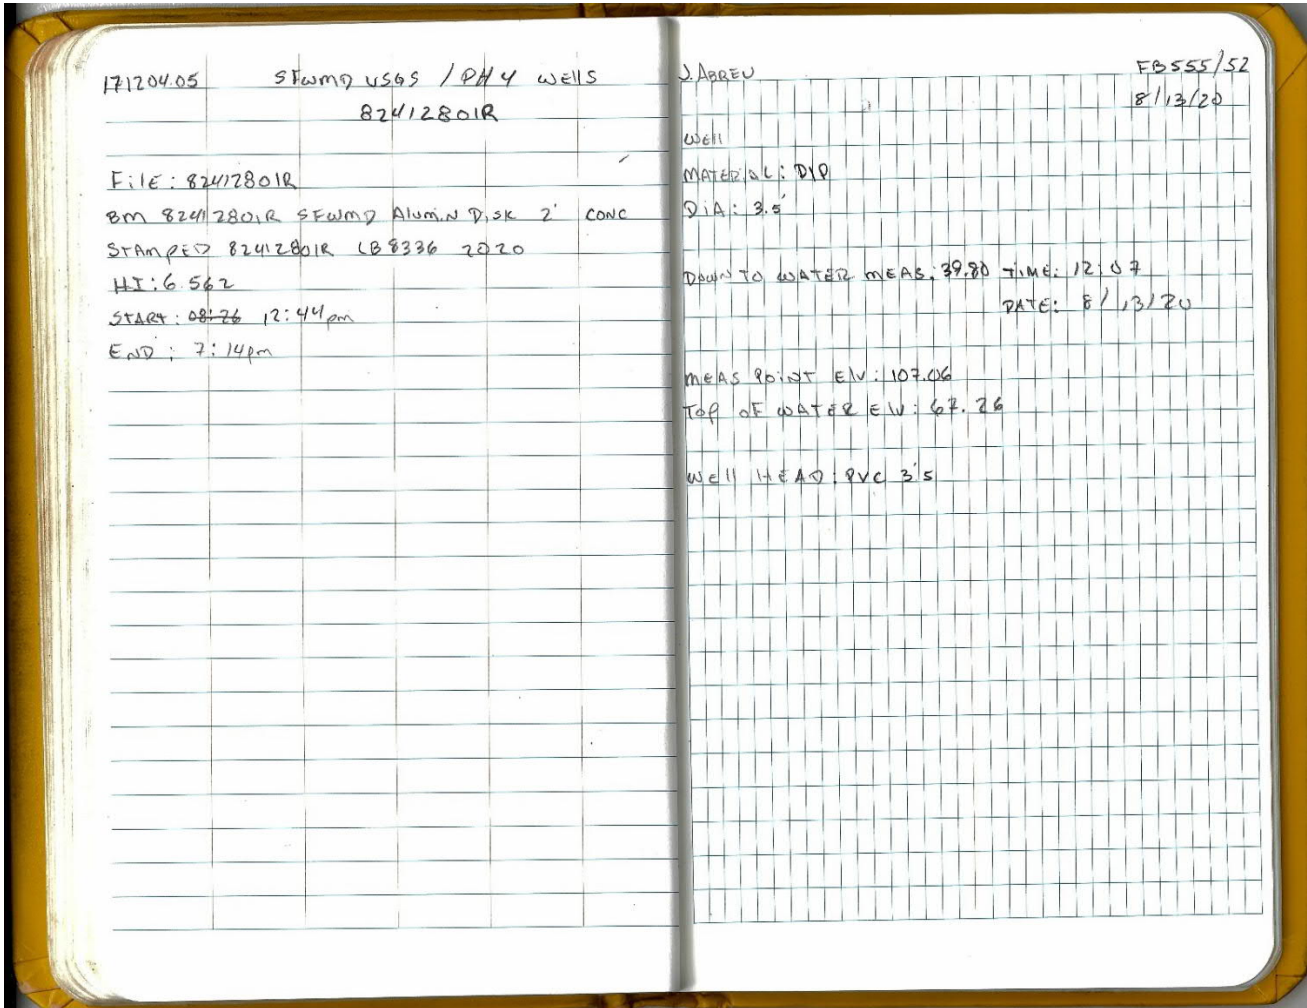 171204.05 SFWMD USGS / PH 4 WEllS
82412801R
FilE: 82412801R
BM 82412801R SFWMD AlumiN DiSK 2' CONC
STAMPED 82412801R LB8336 2020
HI: 6.562
START: 08:26 12:44pm
END: 7:14pm
J. ABREU FB555/52
8/13/20
WEll
MATERIAL: DIP
DIA: 3.5'
DOWN TO WATER MEAS: 39.80 TIME: 12:07
DATE: 8/13/20
MEAS POINT Elv: 107.06
TOP OF WATER Elv: 67.26
WEll HEAD: PVC 3'5